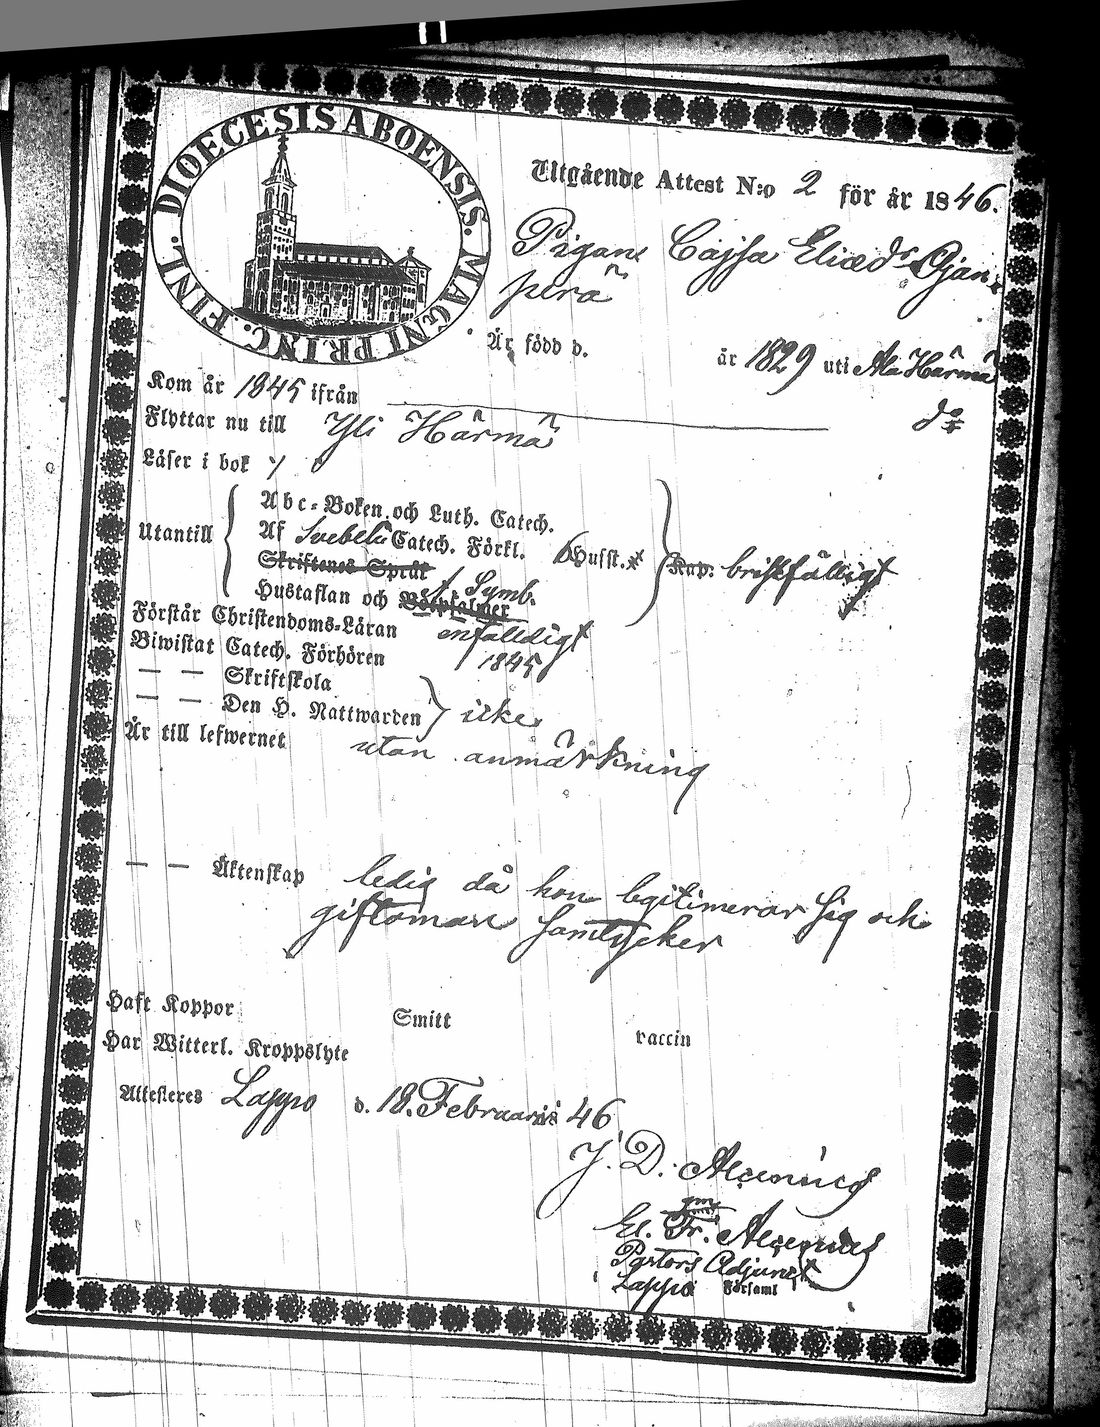 DIOECESIS ABOENSIS. MAGNI PRINC. FINL.
Utgående Attest N:o 2 för år 1846.
Pigan Cajsa Eliæds Ojan-
perä
Är född d. år 1829 uti Ala Härmä
Kom år 1845 ifrån do
Flyttar nu till Yli Härmä
Läser i bok
Utantill
Abc-Boken och Luth. Catech.
Af Svebelii Catech. Förkl. 6 Hufst.
Skriftenes Språk
Kap: bristfälligt
Hustaflan och Botpsalmer A. Symb.
Förstår Christendoms-Läran enfalldigt
Biwistat Catech. Förhören 1845
— — Skriftskola
— — Den H. Nattwarden icke
Är till lefwernet utan anmärkning
— — Äktenskap ledig då hon legitimerar sig och
giftoman samtycker
Haft Koppor Smitt vaccin
Har Witterl. Kroppslyte
Attesteres Lappo d. 18. Februarii 46
J. D. Alcenius
gm
El. Fr. Alcenius
Pastors Adjunct
Lappo Församl